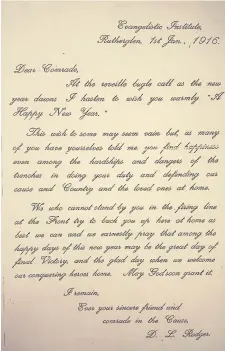 Evangelistic Institute,
Rutherglen, 1st Jan., 1916.
Dear Comrade,
At the reveille bugle call as the new
year dawns I hasten to wish you warmly "A
Happy New Year."
This wish to some may seem vain but, as many
of you have yourselves told me, you find happiness
even among the hardships and dangers of the
trenches in doing your duty and defending our
cause and Country and the loved ones at home.
We who cannot stand by you in the firing line
at the Front try to back you up here at home as
best we can and we earnestly pray that among the
happy days of this new year may be the great day of
final Victory, and the glad day when we welcome
our conquering heroes home. May God soon grant it.
I remain,
Ever your sincere friend and
comrade in the Cause,
D. L. Rodger.